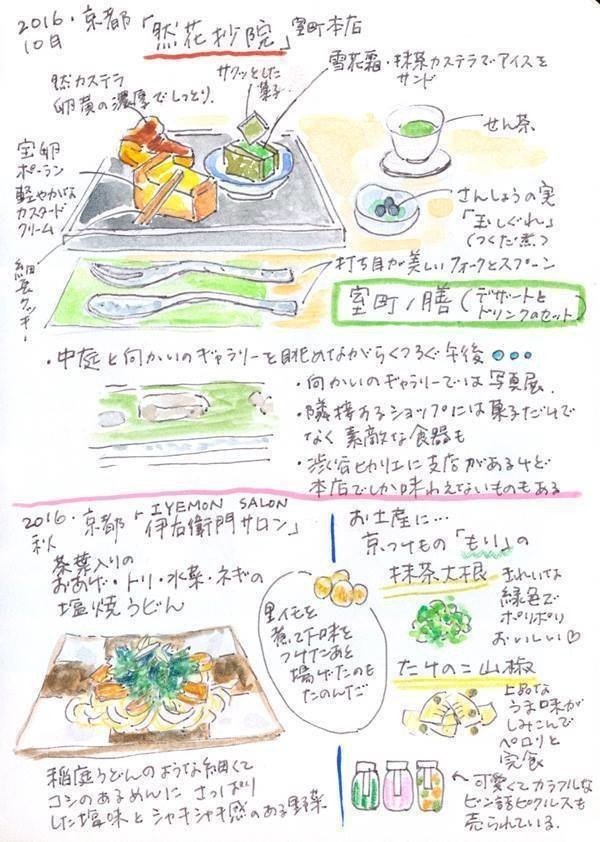 2016・京都「然花抄院」室町本店
10日
然カステラ
卵黄の濃厚でしっとり
サクッとした
菓子
雪花霜・抹茶カステラでアイスを
サンド
せん茶
宝卵
ポーラン
軽やかな
カスタード
クリーム
細長クッキー
さんしょうの実
「玉しぐれ」
(つくだ煮)
打ち目が美しいフォークとスプーン
室町ノ膳(デザートと
ドリンクのセット)
・中庭と向かいのギャラリーを眺めながらくつろぐ午後
・向かいのギャラリーでは写真展
・隣接するショップには菓子だけで
なく素敵な食器も
・渋谷ヒカリエに支店があるけど
本店でしか味わえないものもある
2016・京都「IYEMON SALON
秋 伊右衛門サロン」
茶葉入りの
おあげ・トリ・水菜・ネギの
塩焼うどん
里イモを
煮て下味を
つけたあと
揚げたのも
たのんだ
稲庭うどんのような細くて
コシのあるめんに さっぱり
した塩味とシャキシャキ感のある野菜
お土産に…
京つけもの「もり」の
抹茶大根
きれいな
緑色で
ポリポリ
おいしい♡
たけのこ山椒
上品な
うま味が
しみこんで
ペロリと
完食
可愛くてカラフルな
ビン詰ピクルスも
売られている。